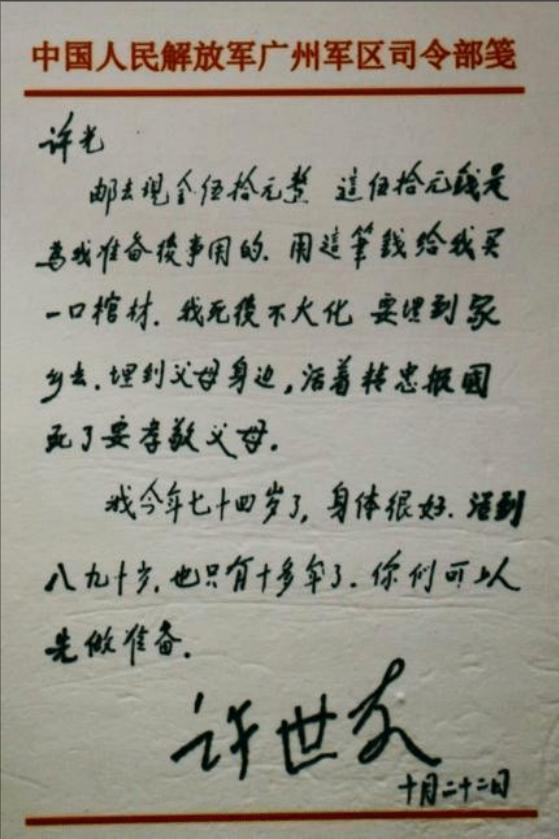 中国人民解放军广州军区司令部笺
许光
邮去现金伍拾元整 這伍拾元錢是
為我准备後事用的. 用這筆錢给我买
一口棺材. 我死後不火化 要埋到家
乡去. 埋到父母身边, 活着精忠报國
死了要孝敬父母.
我今年七十四岁了, 身体很好. 活到
八九十岁, 也只有十多年了. 你们可以
先做准备.
许世友
十月二十二日